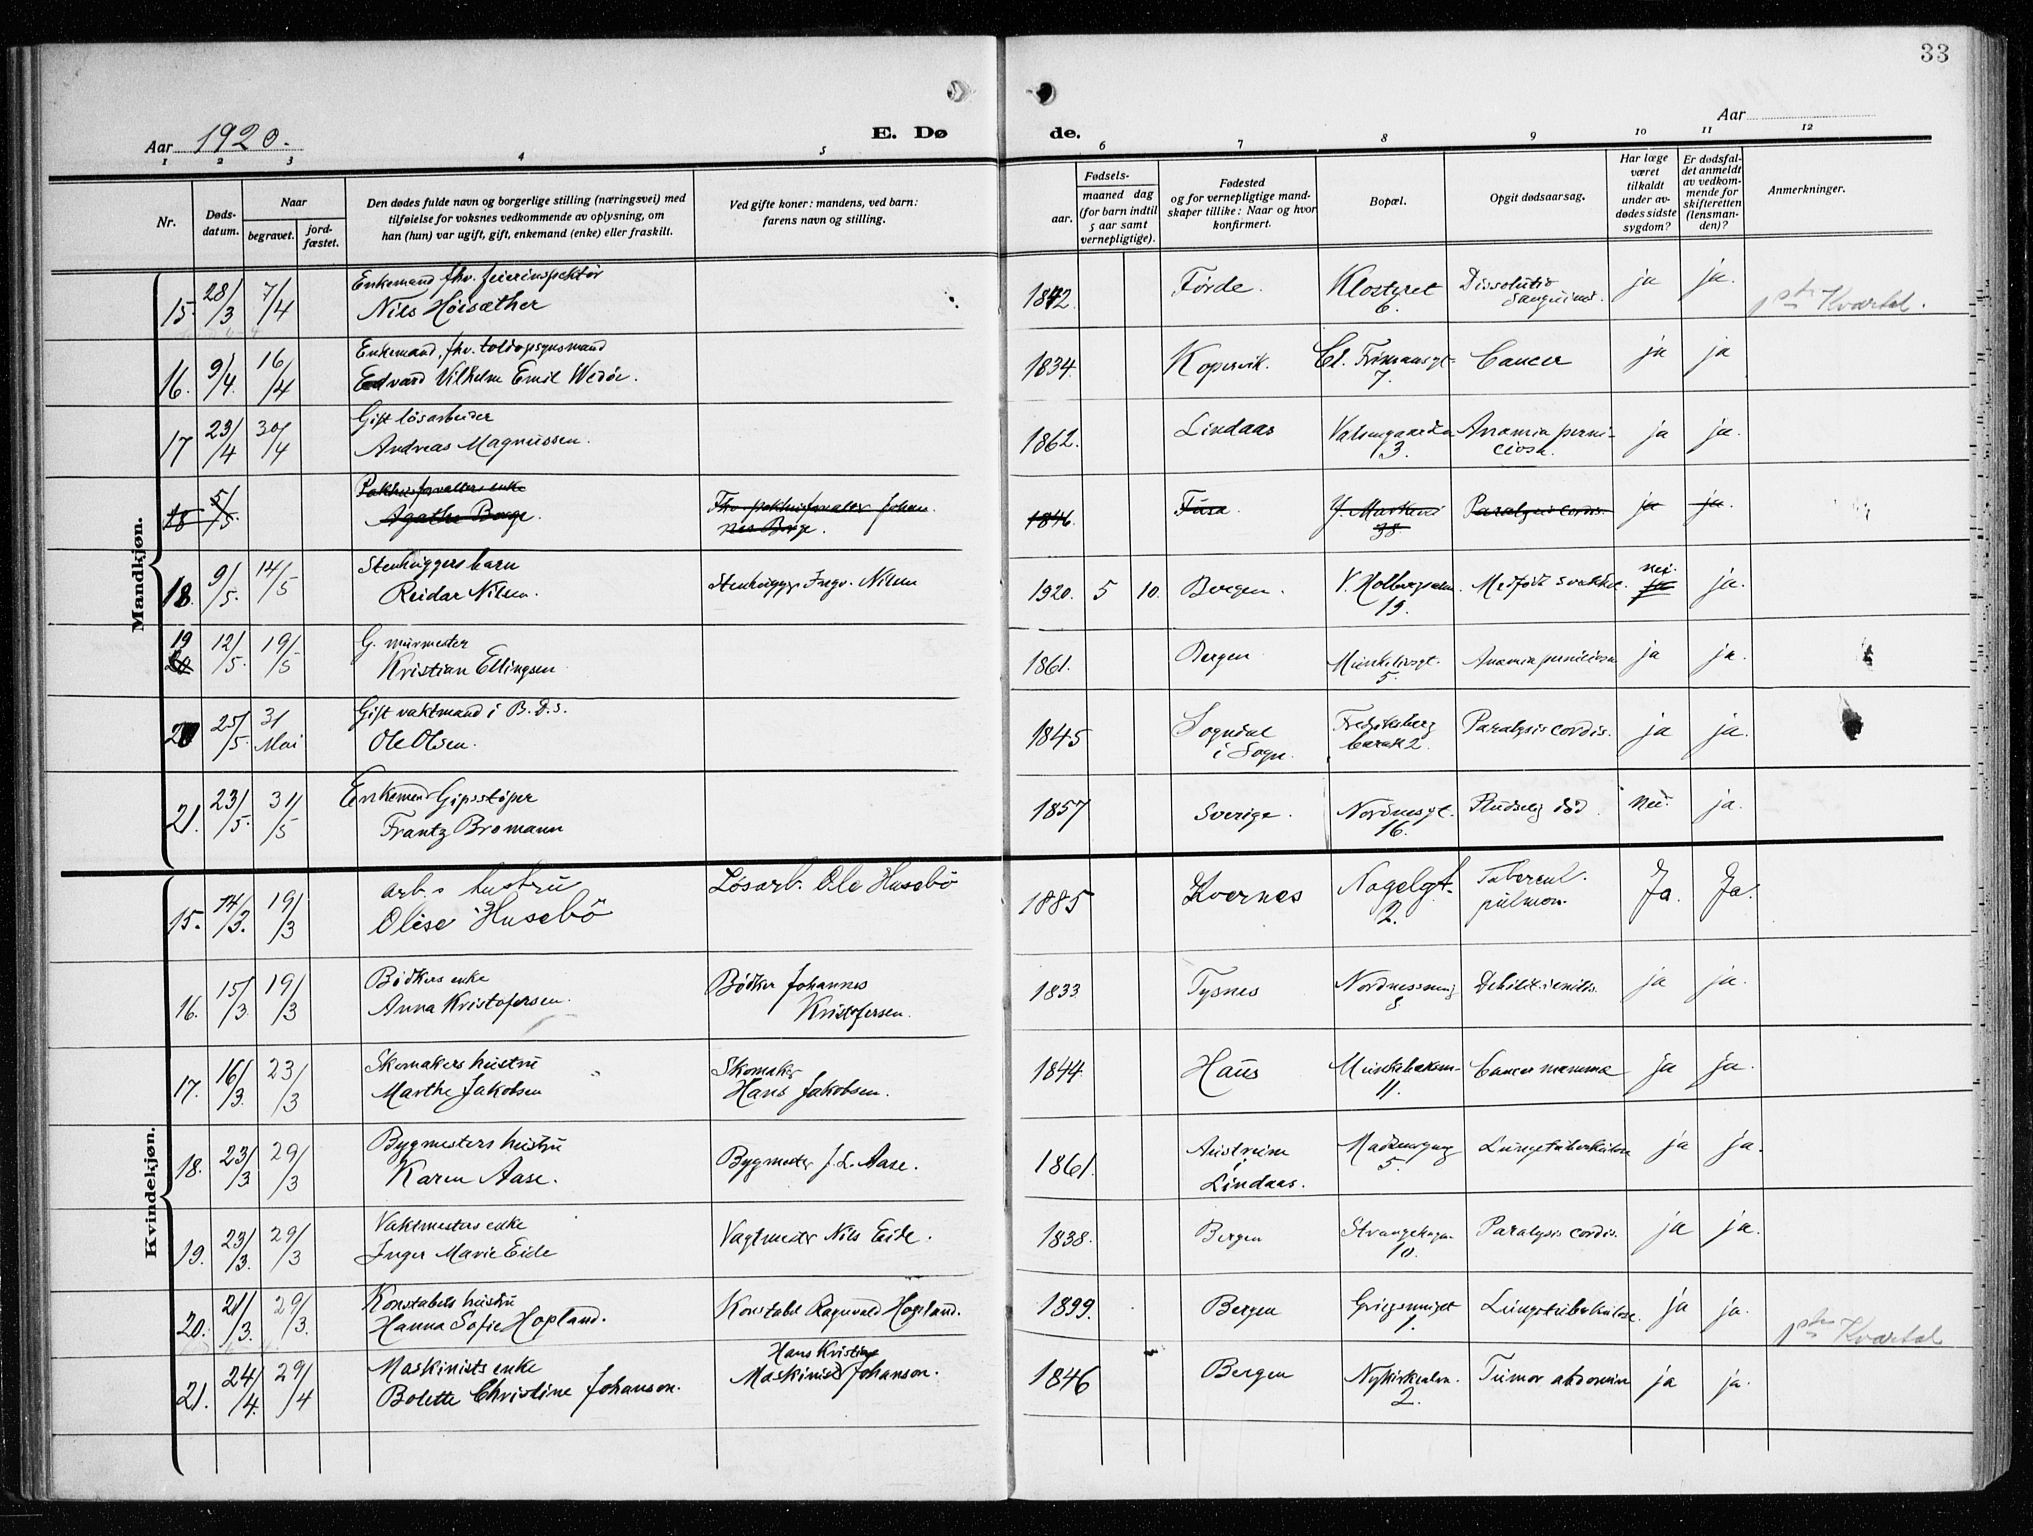 33
Aar 1920. E. Dø de. Aar
1 2 3 4 5 6 7 8 9 10 11 12
Nr.
Døds-
datum.
Naar
begravet.
jord-
fæstet.
Den dødes fulde navn og borgerlige stilling (næringsvei) med
tilføielse for voksnes vedkommende av oplysning, om
han (hun) var ugift, gift, enkemand (enke) eller fraskilt.
Ved gifte koner: mandens, ved barn:
farens navn og stilling.
Fødsels-
aar.
maaned dag
(for barn indtil
5 aar samt
vernepligtige).
Fødested
og for vernepligtige mand-
skaper tillike: Naar og hvor
konfirmert.
Bopæl.
Opgit dødsaarsag.
Har læge
været
tilkaldt
under av-
dødes sidste
sygdom?
Er dødsfal-
det anmeldt
av vedkom-
mende for
skifteretten
(lensman-
den)?
Anmerkninger.
Mandkjøn.
15. 28/3 7/4 Enkemand fhv. feierinspektør
Nils Høisæther
1842. Førde. Klosteret 6. Dissolutio sanguinis. ja ja. 1ste Kvartal.
16. 9/4. 16/4 Enkemand, fhv. toldopsynsmand
Edvard Vilhelm Emil Wedøe.
1834. Kopervik. Cl. Frimansgt. 7. Cancer ja ja
17 23/4 30/4 Gift løsarbeider
Andreas Magnussen.
1862. Lindaas 3. Anamia perni-
ciosa. ja ja.
18 5/5. Pakhusforvalters enke
Agathe Borge.
Fhv. pakhusforvalter Johan-
nes Borge.
1846. Fusa. 38. Paralysis cordis. ja ja.
18. 9/5. 14/5 Stenhuggers barn
Reidar Nilsen.
Stenhugger Ingv. Nilsen
1920. 5 10. Bergen. V. Holbergsalm. 19. Medfødt svakhet. nei. ja ja.
19 20 12/5. 19/5 G. murmester
Kristian Ellingsen
1861. Bergen Munkelivsgt. 5. Anamia perniciosa ja ja.
20 25/5. 31 Mai Gift vaktmand i B. D. S.
Ole Olsen.
1845 Sogndal
i Sogn. Fredriksberg
barak 2. Paralysis cordis. ja ja.
21. 23/5. 31/5 Enkemand Gipsstøper
Frantz Bromann
1857 Sverige. Nordnesgt. 16. Pludselig død. Nei. ja.
Kvindekjøn.
15. 14/3. 19/3 arb.s hustru
Olise Husebö
Løsarb. Ole Husebö
1885 Kvernes Nagelgt. 2. Tubercul.
pulmon. Ja. Ja.
16. 15/3 19/3 Bødkers enke
Anna Kristofersen.
Bødker Johannes
Kristofersen.
1833 Tysnes Nordnesveg 8 Debilit. senilis. ja ja.
17. 16/3. 23/3 Skomakers hustru
Marthe Jakobsen
Skomaker
Hans Jakobsen.
1844 Haus 11. Cancer mamma ja ja.
18. 23/3 29/3 Bygmesters hustru
Karen Aase.
Bygmester J. L. Aase.
1861. Austreim
i
Lindaas. 5. Lungetuberkulose ja ja.
19. 23/3. 29/3 Vaktmesters enke
Inger Marie Eide
Vagtmester Nils Eide.
1838. Bergen Strangehagen 10. Paralysis cordis. ja ja.
20. 21/3. 29/3. Konstabels hustru
Hanna Sofie Hopland.
Konstabel Ragnvald Hopland.
1899. Bergen Griegsmuget 1. Lungetuberkulose. ja ja. 1ste Kvartal
21. 24/4. 29/4 Maskinists enke
Bolette Christine Johanson.
Hans Kristian
Maskinist Johanson.
1846 Bergen Nykirkealm. 2. Tumor abdomin ja ja.